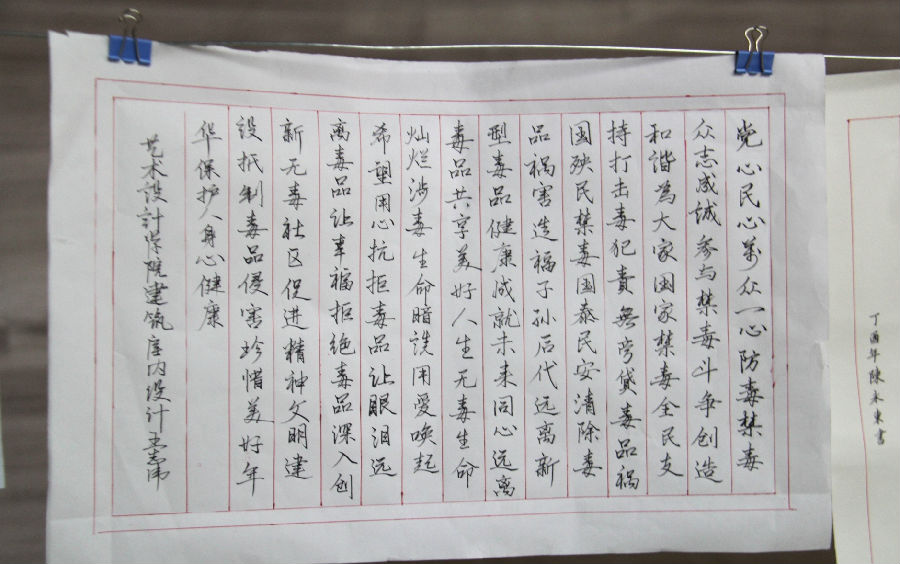 党心民心万众一心防毒禁毒
众志成诚参与禁毒斗争创造
和谐为大家国家禁毒全民支
持打击毒犯責無旁贷毒品祸
国殃民禁毒国泰民安清除毒
品祸害造福子孙后代远离新
型毒品健康成就未来同心远离
毒品共享美好人生无毒生命
灿烂涉毒生命暗淡用爱唤起
希望用心抗拒毒品让眼泪远
离毒品让幸福拒绝毒品深入创
新无毒社区促进精神文明建
设抵制毒品侵害珍惜美好年
华保护人身心健康
艺术设计学院建筑室内设计
丁酉年陳永東書